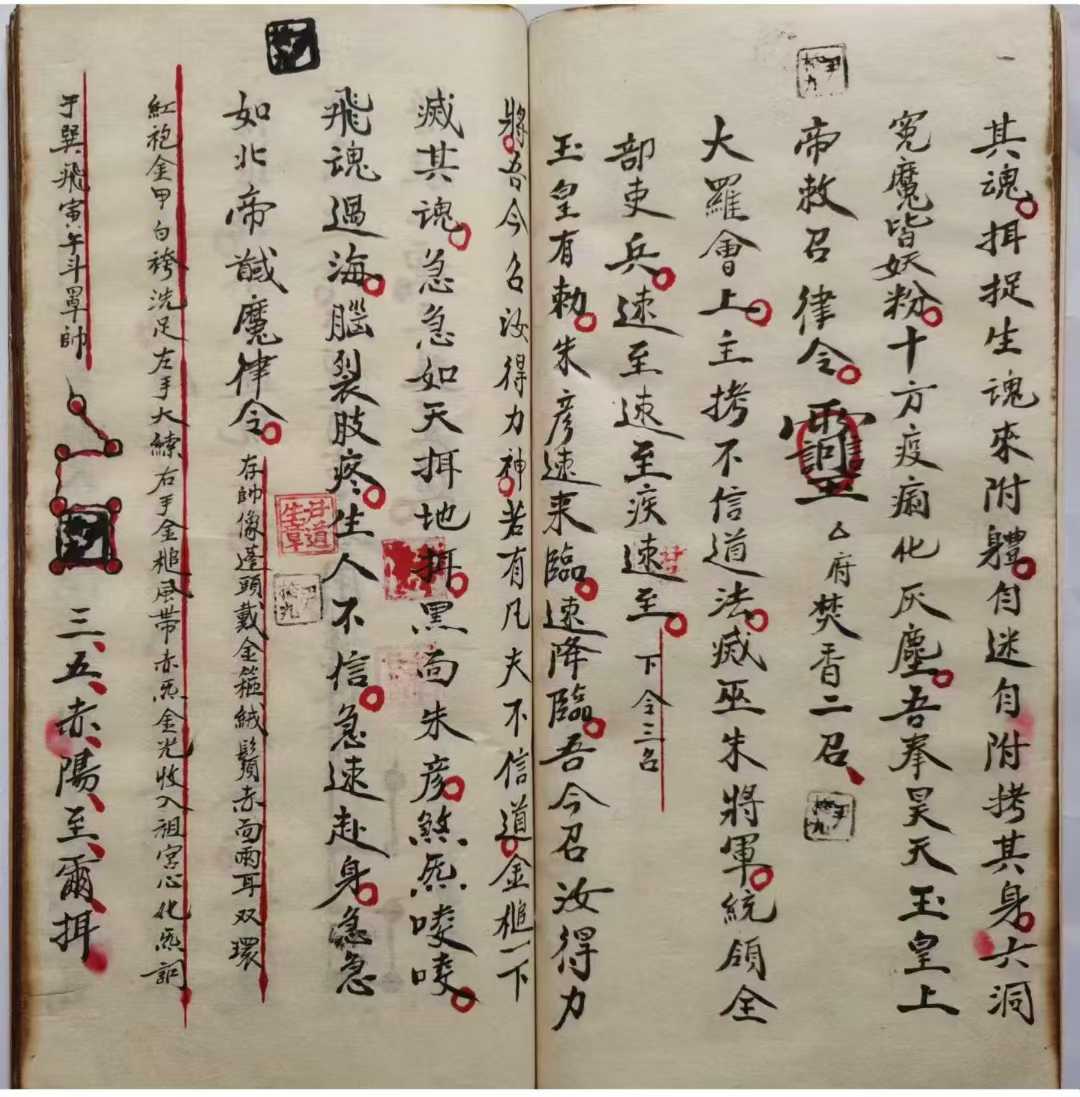 其魂。挕捉生魂來附體。自迷自附拷其身。六洞
冤魔皆妖粉。十方疫痫化灰塵。吾奉昊天玉皇上
帝敕召律令。 厶府焚香二召、
大羅會上。主拷不信道法。滅巫朱將軍。統領全
部吏兵。速至速至疾速至。下令三召
玉皇有勅。朱彦速来臨。速降臨。吾今召汝得力
將。吾今召汝得力神。若有凡夫不信道。金槌一下
滅其魂。急急如天挕地挕。黑面朱彦。煞炁唛唛。
飛魂過海。腦裂肢疼。生人不信。急速赴身。急急
如北帝馘魔律令。存帥像蓬頭戴金箍絨鬚赤面兩耳双環
紅袍金甲白袴洗足左手大縤右手金槌風帶赤炁金光收入祖宮心化炁訶
于巽飛寅午斗罩帥 三、五、赤、陽、至、爾、挕
甘道生章